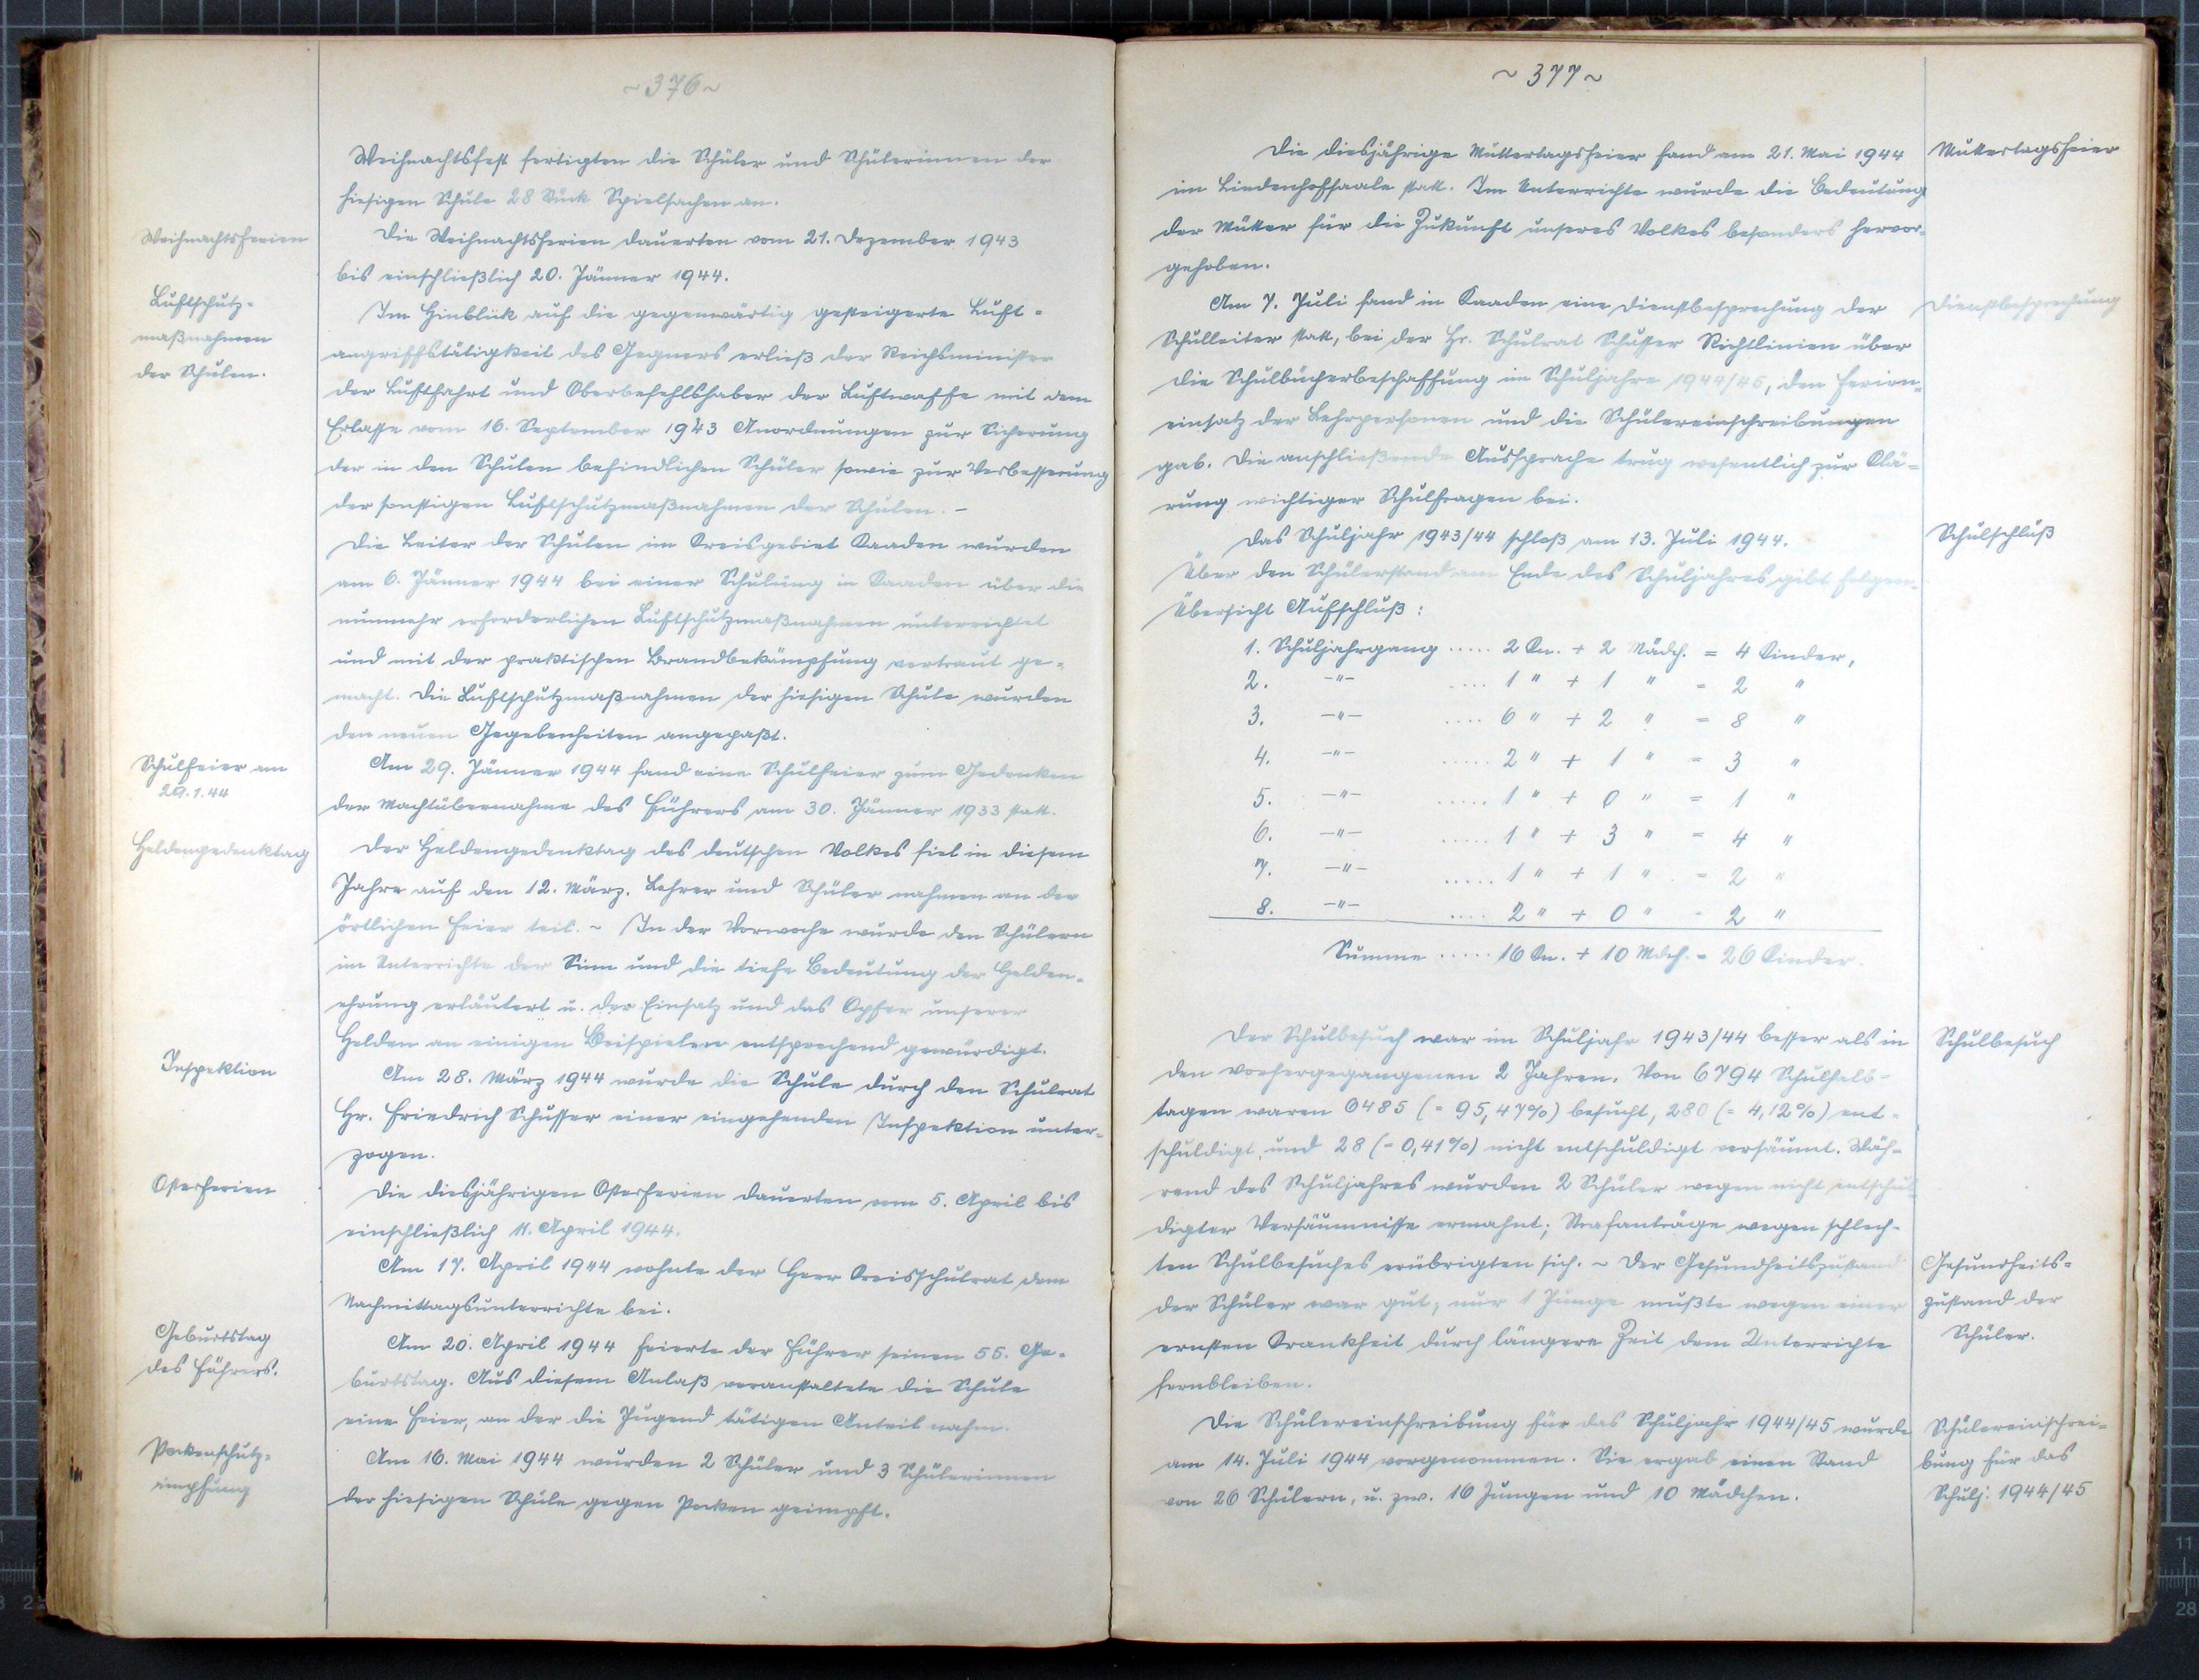 ~ 376 ~
Weihnachtsfest fertigten die Schüler und Schülerinnen der
hiesigen Schule 28 Stück Spielsachen an.
Weihnachtsferien
Die Weihnachtsferien dauerten vom 21. Dezember 1943
bis einschließlich 20. Jänner 1944.
Luftschutz-
maßnahmen
der Schulen.
Im Hinblick auf die gegenwärtig gesteigerte Luft-
angriffstätigkeit des Gegners erließ der Reichsminister
der Luftfahrt und Oberbefehlshaber der Luftwaffe mit dem
Erlasse vom 16. September 1943 Anordnungen zur Sicherung
der in den Schulen befindlichen Schüler sowie zur Verbesserung
der sonstigen Luftschutzmaßnahmen der Schulen. –
Die Leiter der Schulen im Kreisgebiet Kaaden wurden
am 6. Jänner 1944 bei einer Schulung in Kaaden über die
nunmehr erforderlichen Luftschutzmaßnahmen unterrichtet
und mit der praktischen Brandbekämpfung vertraut ge-
macht. Die Luftschutzmaßnahmen der hiesigen Schule wurden
den neuen Gegebenheiten angepaßt.
Schulfeier am
29.1.44
Am 29. Jänner 1944 fand eine Schulfeier zum Gedenken
der Machtübernahme des Führers am 30. Jänner 1933 statt.
Heldengedenktag
Der Heldengedenktag des deutschen Volkes fiel in diesem
Jahre auf den 12. März. Lehrer und Schüler nahmen an der
örtlichen Feier teil. ~ In der Vorwoche wurde den Schülern
im Unterrichte der Sinn und die tiefe Bedeutung der Helden-
ehrung erläutert u. der Einsatz und das Opfer unserer
Helden an einigen Beispielen entsprechend gewürdigt.
Inspektion
Am 28. März 1944 wurde die Schule durch den Schulrat
Hr. Friedrich Schusser einer eingehenden Inspektion unter-
zogen.
Osterferien
Die diesjährigen Osterferien dauerten vom 5. April bis
einschließlich 11. April 1944.
Am 17. April 1944 wohnte der Herr Kreisschulrat dem
Nachmittagsunterrichte bei.
Geburtstag
des Führers.
Am 20. April 1944 feierte der Führer seinen 55. Ge-
burtstag. Aus diesem Anlaß veranstaltete die Schule
eine Feier, an der die Jugend tätigen Anteil nahm.
Pockenschutz-
impfung
Am 16. Mai 1944 wurden 2 Schüler und 3 Schülerinnen
der hiesigen Schule gegen Pocken geimpft.
~ 377 ~
Die diesjährige Muttertagsfeier fand am 21. Mai 1944
Muttertagsfeier
im Lindenhofsaale statt. Im Unterrichte wurde die Bedeutung
der Mütter für die Zukunft unseres Volkes besonders hervor-
gehoben.
Am 7. Juli fand in Kaaden eine Dienstbesprechung der
Dienstbesprechung
Schulleiter statt, bei der Hr. Schulrat Schusser Richtlinien über
die Schulbücherbeschaffung im Schuljahre 1944/45, den Ferien-
einsatz der Lehrpersonen und die Schülereinschreibungen
gab. Die anschließende Aussprache trug wesentlich zur Klä-
rung wichtiger Schulfragen bei.
Das Schuljahr 1943/44 schloß am 13. Juli 1944.
Schulschluß
Über den Schülerstand am Ende des Schuljahres gibt folgen.
Übersicht Aufschluß:
1. Schuljahrgang ..... 2 Kn. + 2 Mädch. = 4 Kinder,
2. –"– .... 1 " + 1 " = 2 "
3. –"– .... 6 " + 2 " = 8 "
4. –"– ..... 2 " + 1 " = 3 "
5. –"– ..... 1 " + 0 " = 1 "
6. –"– ..... 1 " + 3 " = 4 "
7. –"– ..... 1 " + 1 " = 2 "
8. –"– .... 2 " + 0 " = 2 "
Summe ..... 16 Kn. + 10 Mdch. = 26 Kinder.
Der Schulbesuch war im Schuljahr 1943/44 besser als in
Schulbesuch
den vorhergegangenen 2 Jahren. Von 6794 Schulhalb-
tagen waren 6485 (= 95,47%) besucht, 280 (= 4,12%) ent-
schuldigt, und 28 (= 0,41%) nicht entschuldigt versäumt. Wäh-
rend des Schuljahres wurden 2 Schüler wegen nicht entschul
digter Versäumnisse ermahnt; Strafanträge wegen schlech-
ten Schulbesuches erübrigten sich. ~ Der Gesundheitszustand
Gesundheits-
zustand der
Schüler.
der Schüler war gut, nur 1 Junge mußte wegen einer
ernsten Krankheit durch längere Zeit dem Unterrichte
fernbleiben.
Die Schülereinschreibung für das Schuljahr 1944/45 wurde
Schülereinschrei-
bung für das
Schulj. 1944/45
am 14. Juli 1944 vorgenommen. Sie ergab einen Stand
von 26 Schülern, u. zw. 16 Jungen und 10 Mädchen.
11
28